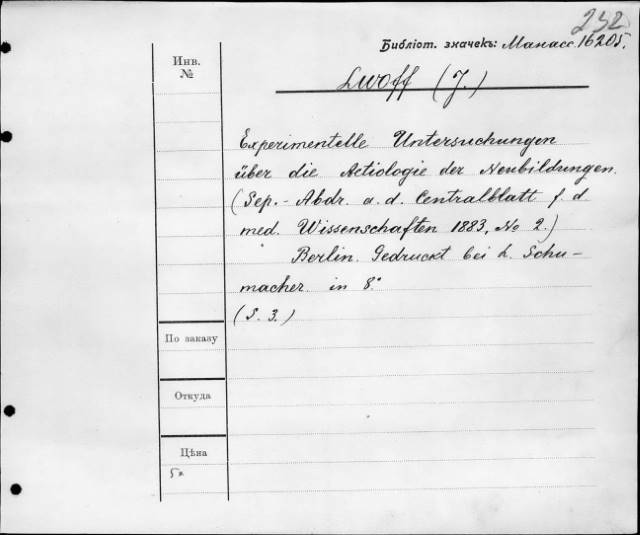 232
Библіот. значекъ: Манасс. 16205.
Инв.
№
Lwoff (J.)
Experimentelle Untersuchungen
über die Aetiologie der Neubildungen.
(Sep.- Abdr. a. d. Centralblatt f. d
med. Wissenschaften 1883, No 2.)
Berlin. Gedruckt bei L. Schu-
macher. in 8°.
(S. 3.)
По заказу
Откуда
Цѣна